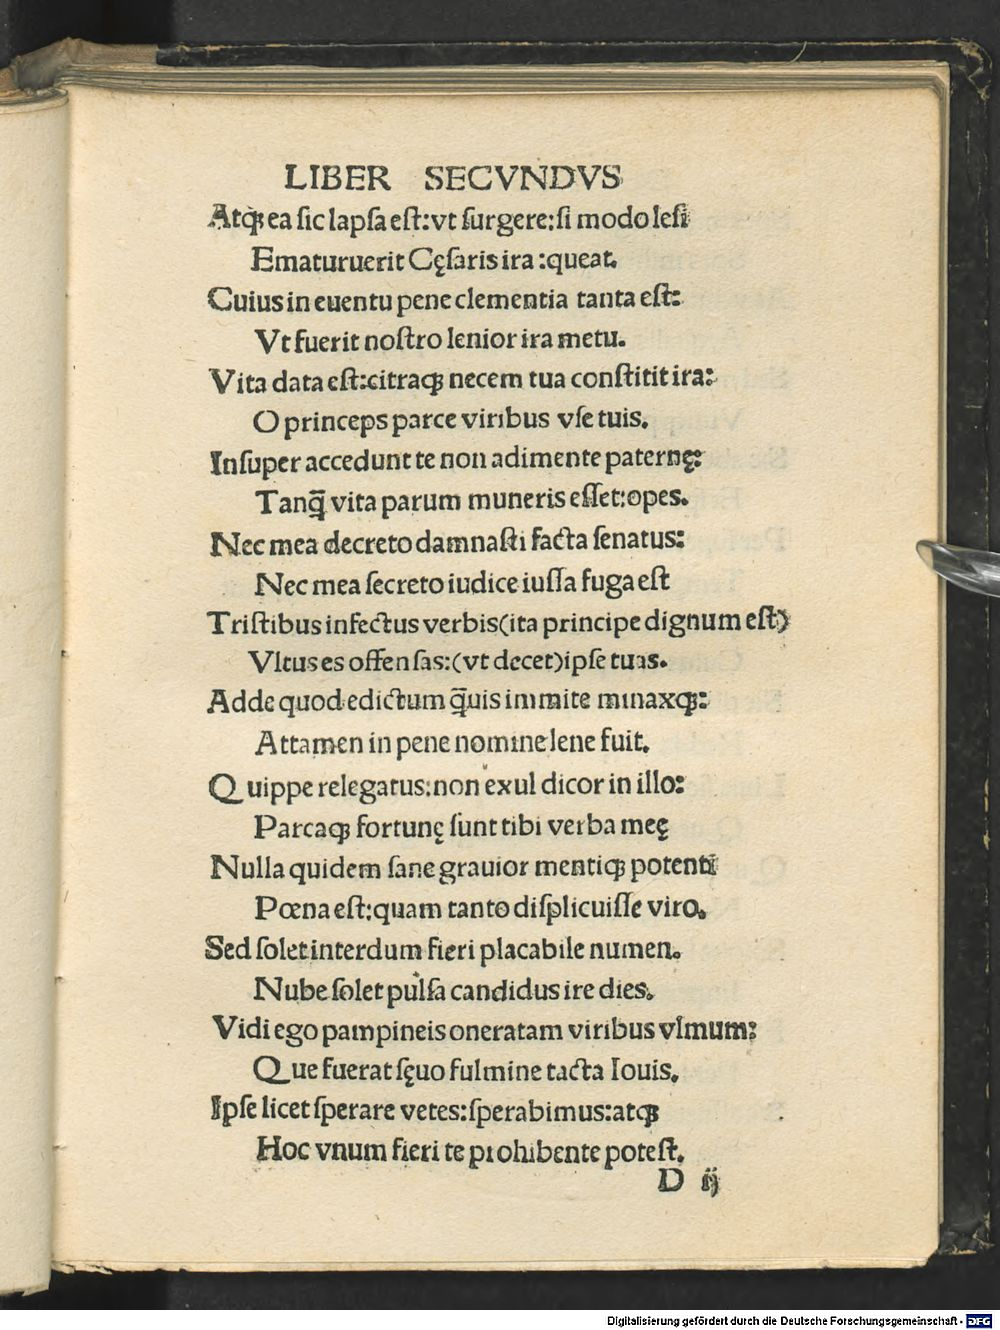 LIBER SECVNDVS
Atqꝫ ea ſic lapſa eſt:vt ſurgere:ſi modo leſi
Ematuruerit Cęſaris ira:queat.
Cuius in euentu pene clementia tanta eſt:
Vt fuerit noſtro lenior ira metu.
Vita data eſt:citraqꝫ necem tua conſtitit ira:
O princeps parce viribus vſe tuis.
Inſuper accedunt te non adimente paternę:
Tanq̃ vita parum muneris eſſet:opes.
Nec mea decreto damnaſti facta ſenatus:
Nec mea ſecreto iudice iuſſa fuga eſt
Triſtibus infectus verbis(ita principe dignum eſt)
Vltus es offenſas:(vt decet)ipſe tuas.
Adde quod edictum q̃uis immite minaxqꝫ:
Attamen in pene nomine lene fuit.
Quippe relegatus:non exul dicor in illo:
Parcaqꝫ fortunę ſunt tibi verba meę
Nulla quidem ſane grauior mentiqꝫ potenti
Pœna eſt:quam tanto diſplicuiſſe viro.
Sed ſolet interdum fieri placabile numen.
Nube ſolet pulſa candidus ire dies.
Vidi ego pampineis oneratam viribus vlmum:
Que fuerat ſęuo fulmine tacta Iouis.
Ipſe licet ſperare vetes:ſperabimus:atqꝫ
Hoc vnum fieri te prohibente poteſt.
D ij
Digitalisierung gefördert durch die Deutsche Forschungsgemeinschaft - DFG